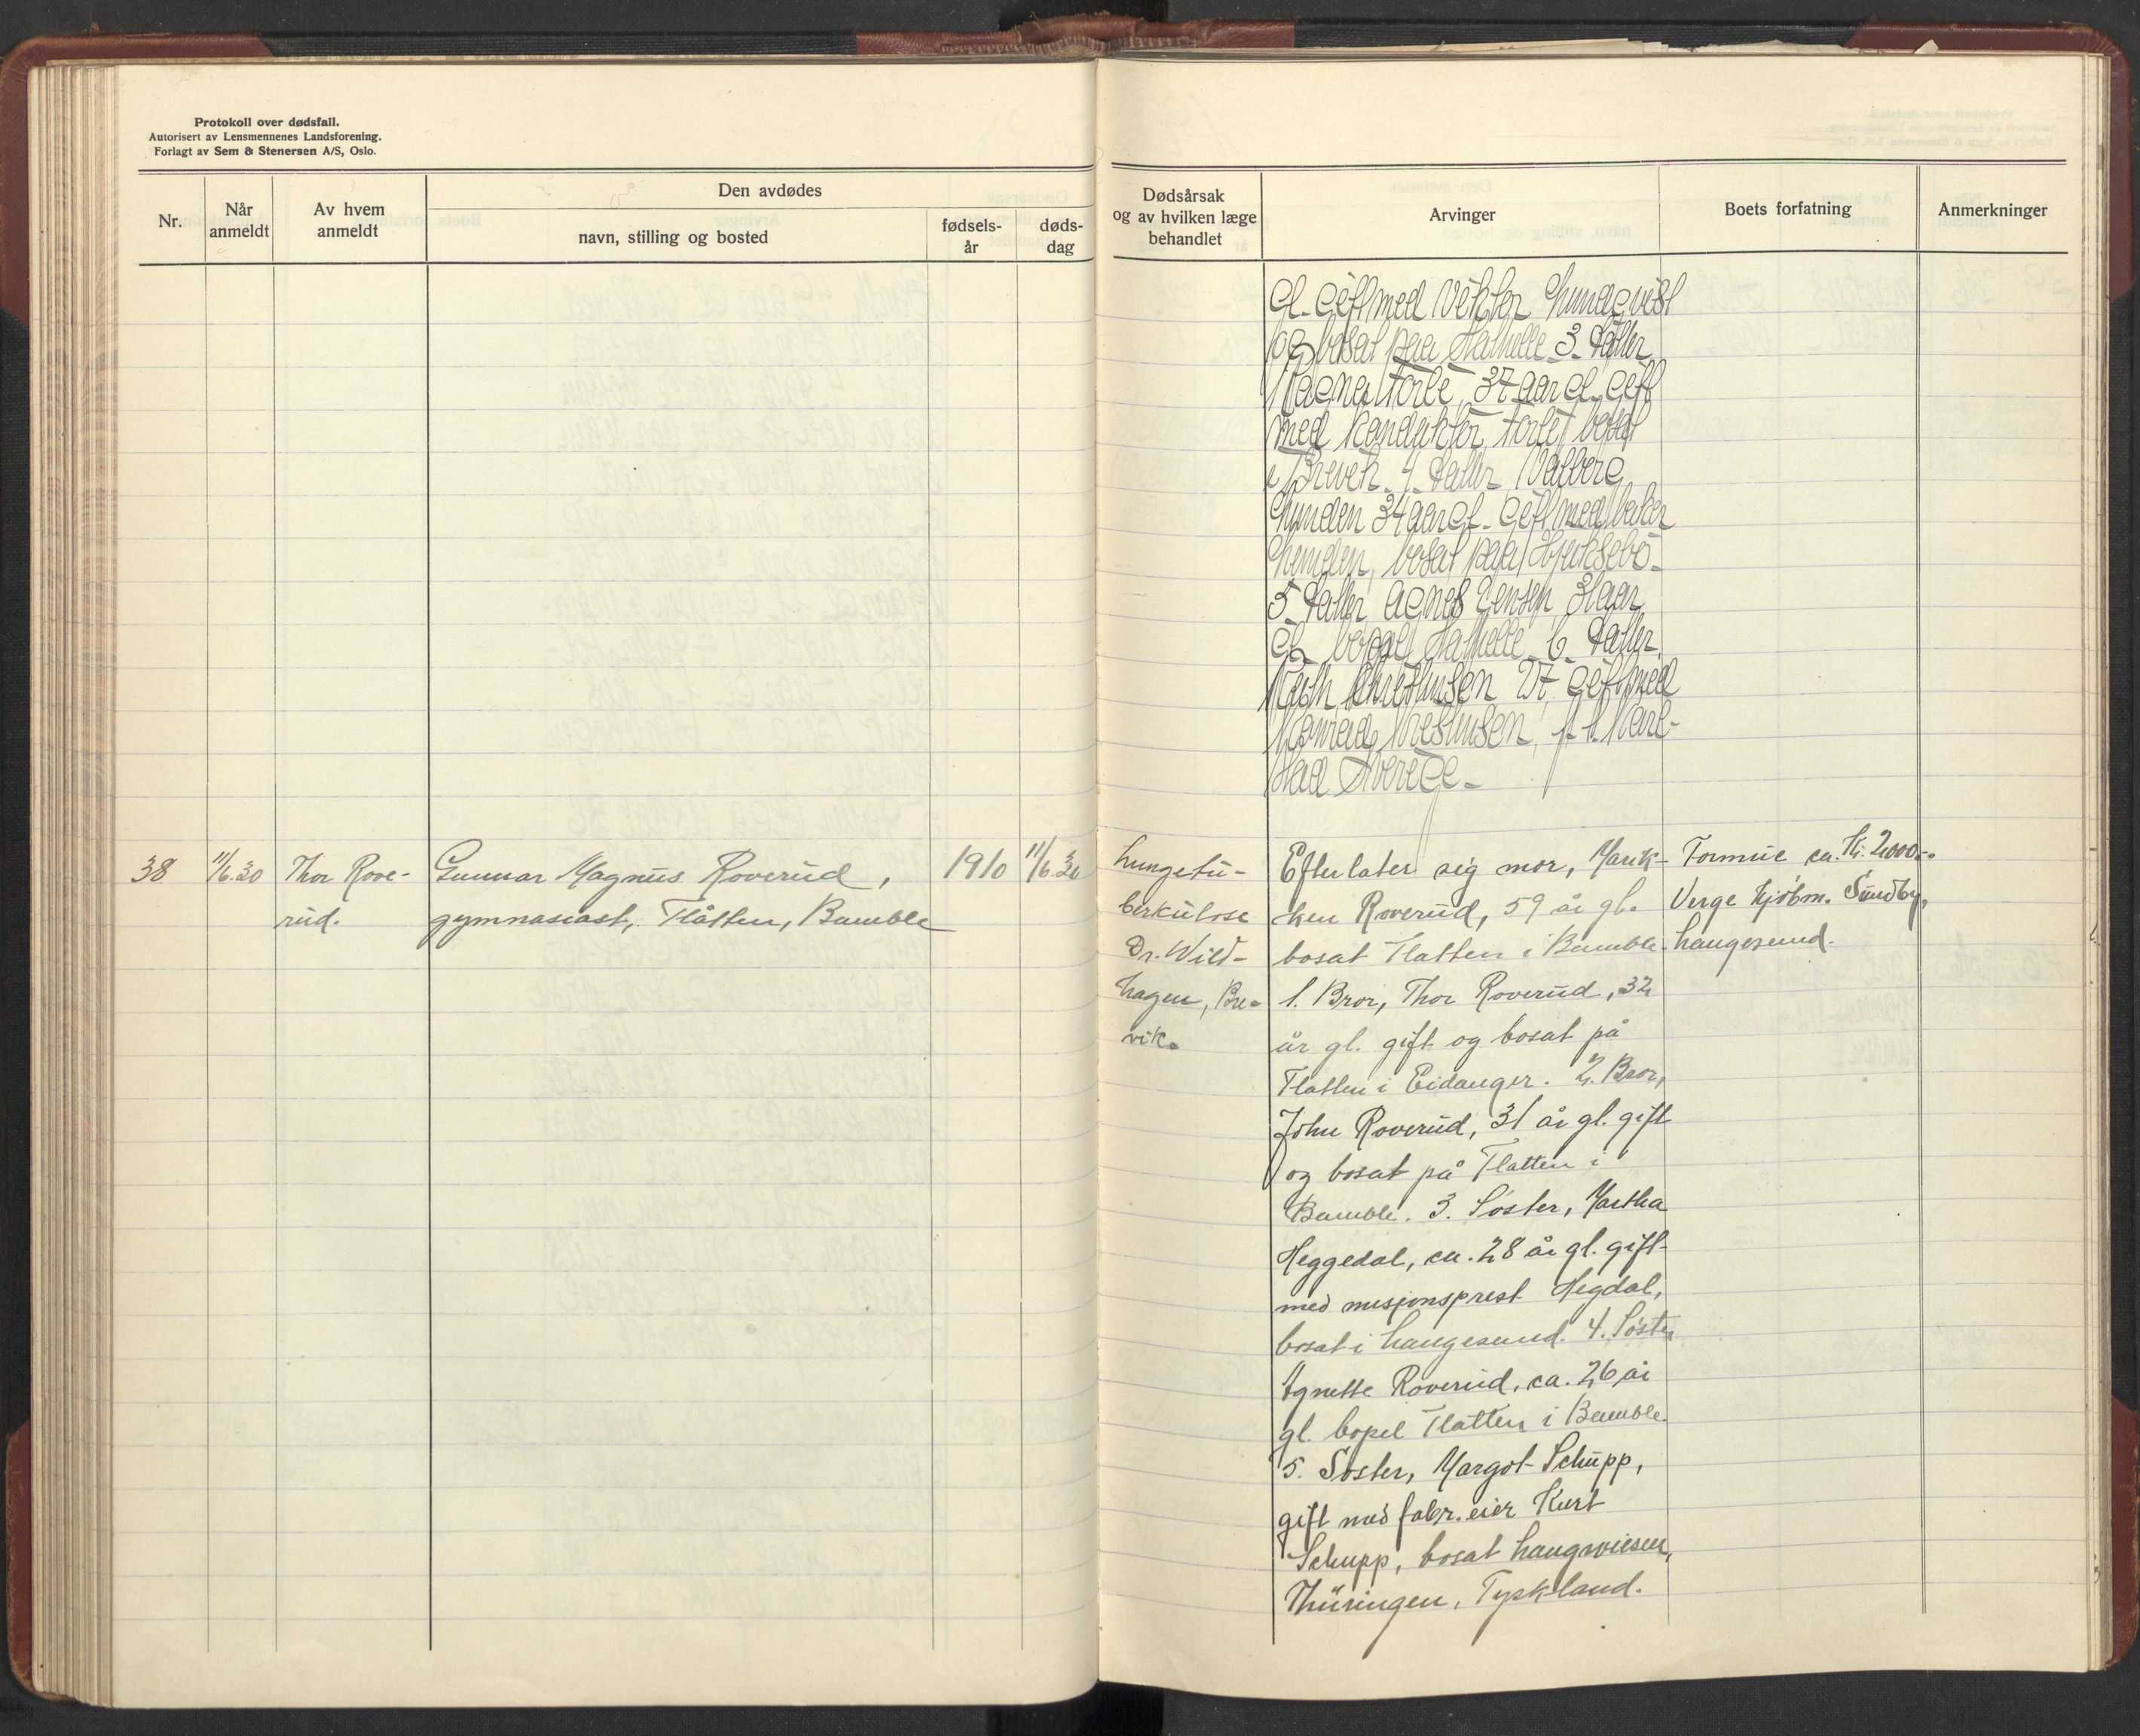 Protokoll over dødsfall.
Autorisert av Lensmennenes Landsforening.
Forlagt av Sem & Stenersen A/S, Oslo.
Nr.
Når anmeldt
Av hvem anmeldt
Den avdødes
navn, stilling og bosted
fødsels-
år
døds-
dag
Dødsårsak
og av hvilken læge
behandlet
Arvinger
Boets forfatning
Anmerkninger
gl. gift med Viktor Lundqvist
og bosat paa Stathelle 3. datter
Ragna 37 aar gl. gift
med konduktør bosat
i Brevik. 4. datter Valborg
Lunden 34 aar gl. gift med baker
Lunden, bosat paa Hjuksebø.
5. datter Agnes Jensen, 31 aar
gl. bopæl Stathelle 6. datter
27, gift med
Konrad p. t. Karl-
stad Sverige.
38
11/6.30
Thor Rove-
rud.
Gunnar Magnus Roverud,
gymnasiast, Flåtten, Bamble
1910
11/6.30
Lungetu-
berkulose
Dr. Wild-
hagen, Bre-
vik.
Efterlater sig mor, Marik-
ken Roverud, 59 år gl.
bosat Flatten i Bamble.
1. Bror, Thor Roverud, 32
år gl. gift og bosat på
Flatten i Eidanger. 2. Bror,
John Roverud, 31 år gl. gift
og bosat på Flatten i
Bamble. 3. Søster, Martha
Heggedal, ca. 28 år gl. gift
med misjonsprest Hegdal,
bosat i Langesund. 4. Søster
Agnette Roverud, ca. 26 år
gl. bopel Flatten i Bamble.
5. Søster, Margot Schupp,
gift med fabr. eier Kurt
Schupp, bosat Langwiesen,
Thüringen, Tyskland.
Formue ca. Kr. 2000.-
Verge kjøbm. Sundby,
Langesund.